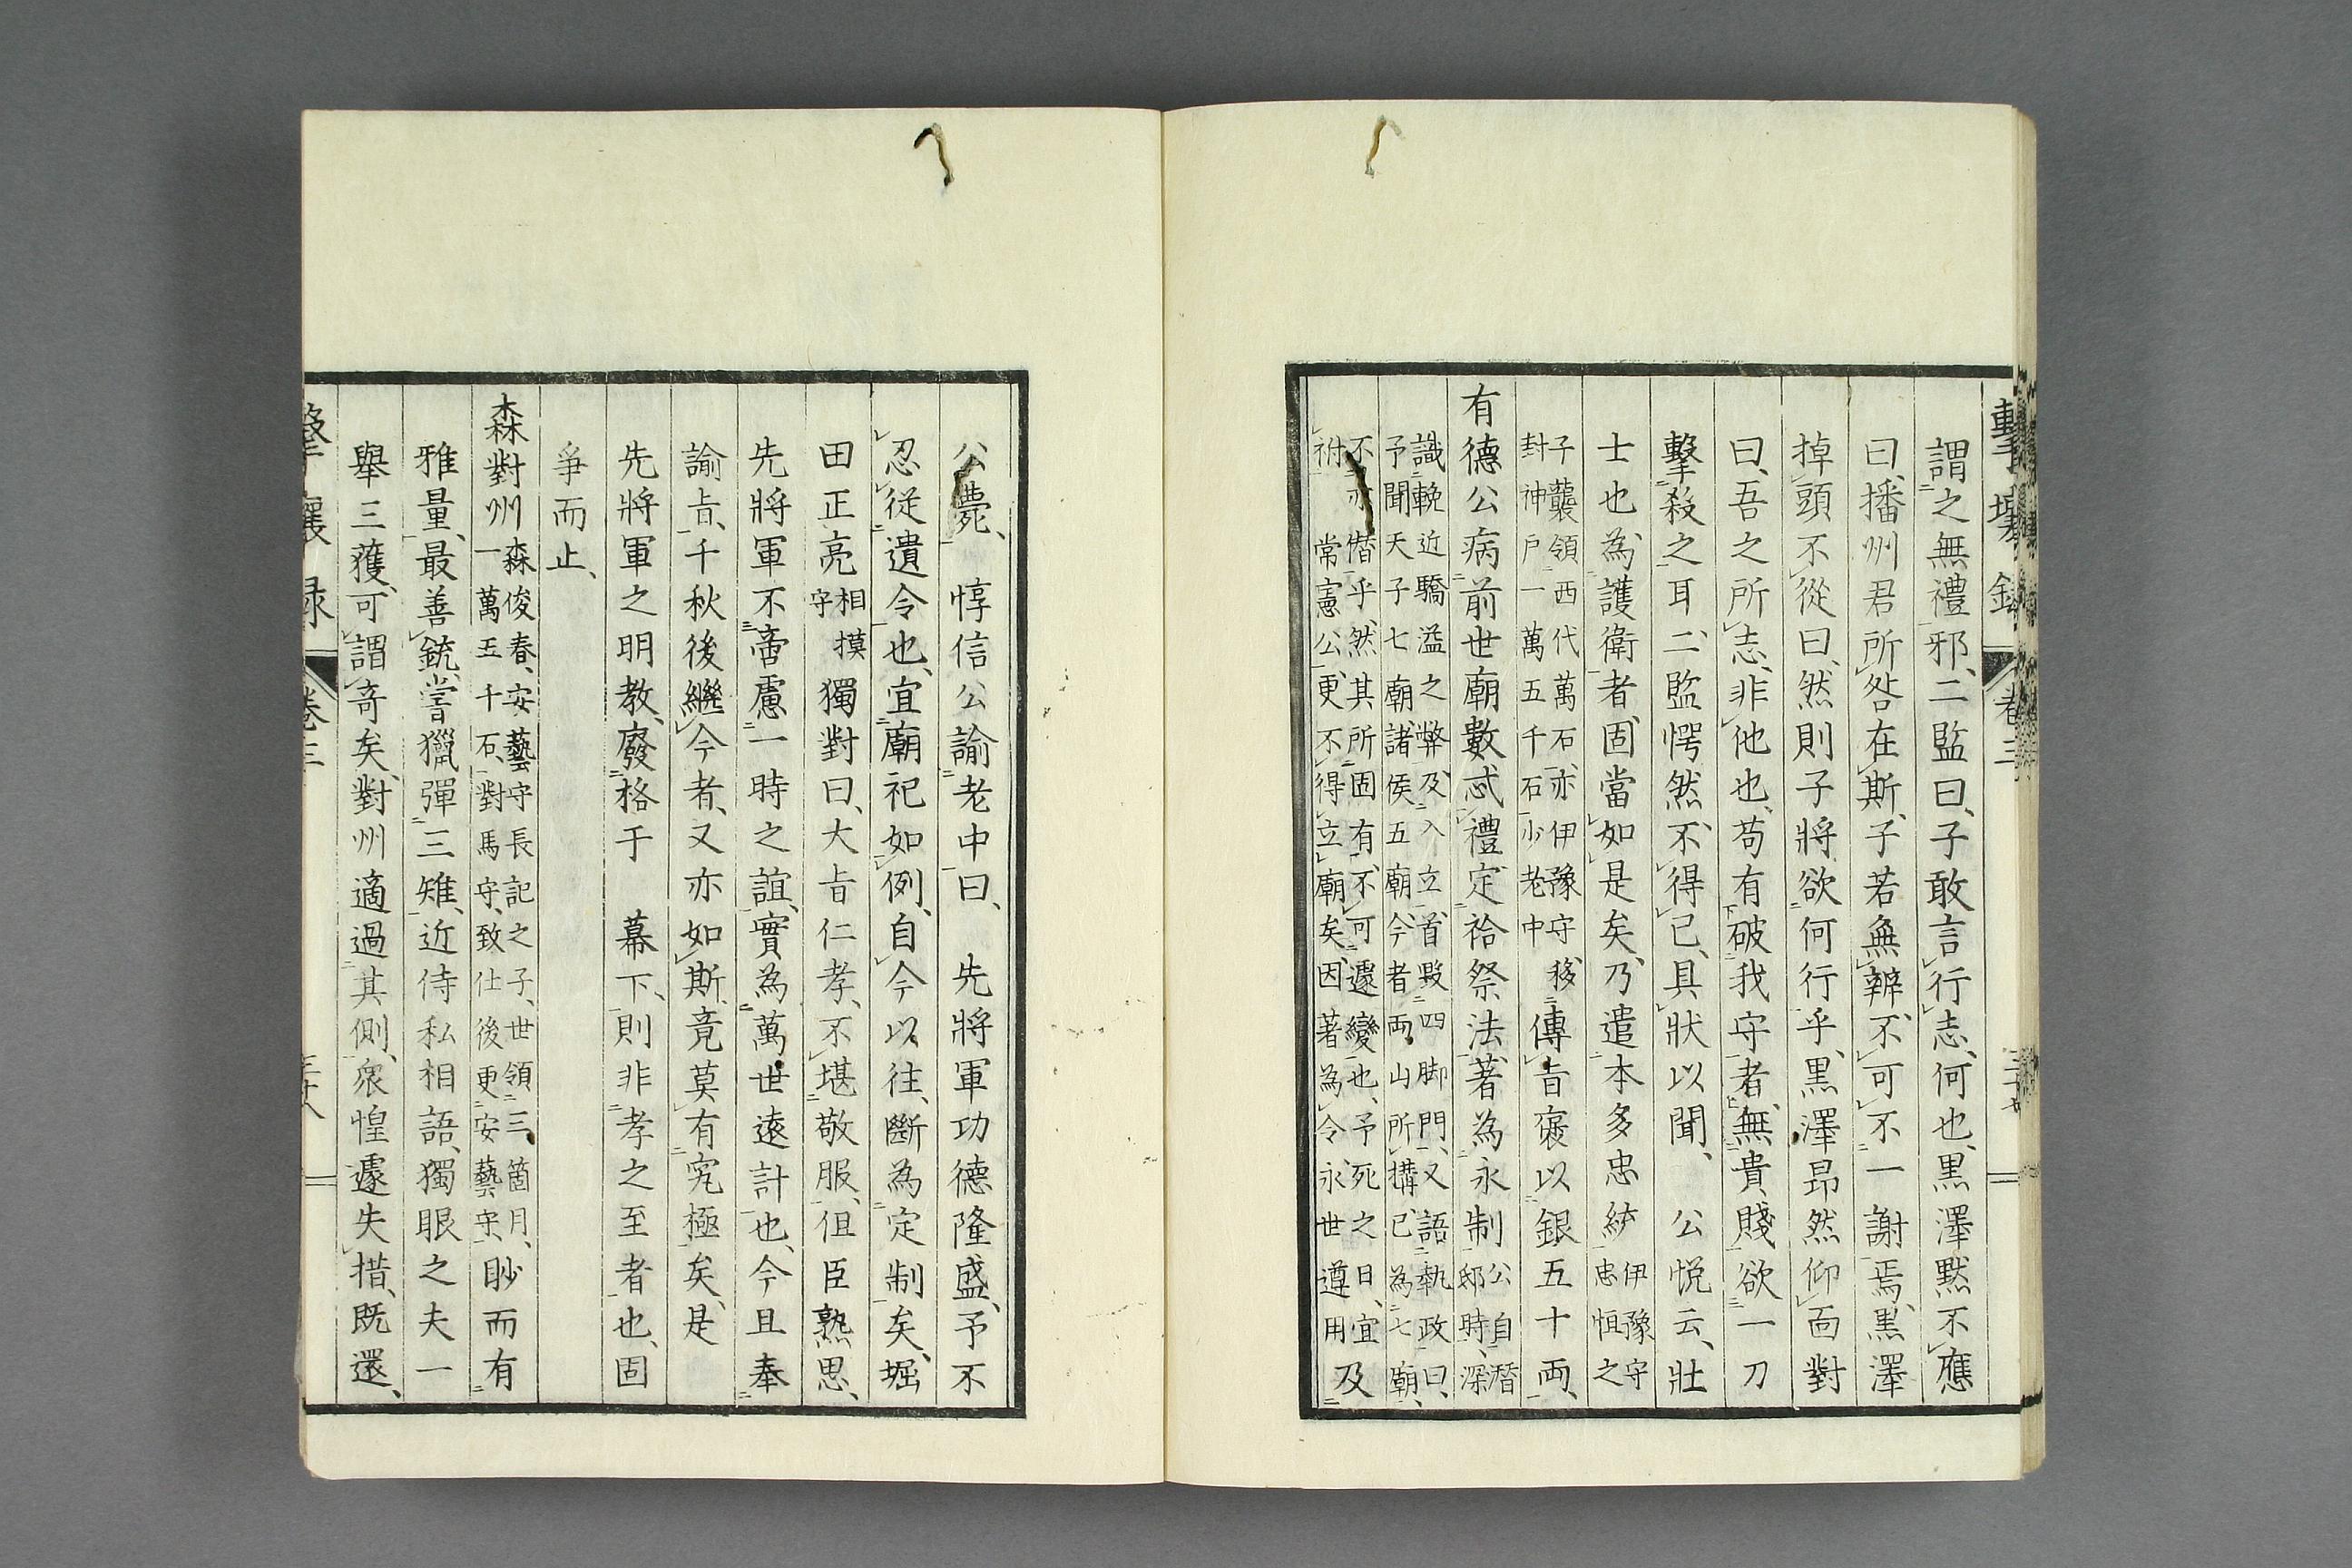 擊壤錄 卷三
謂之無禮邪、二監曰、子敢言行志、何也、黑澤默不應
曰、播州君所咎在斯、子若無辨、不可、不一謝焉、黑澤
掉頭不從曰、然則子將欲何行乎、黑澤昂然仰面對
曰、吾之所志、非他也、苟有破我守者、無貴賤欲一刀
擊殺之耳、二監愕然、不得已、具狀以聞、 公悅云、壯
士也、為護衛者、固當如是矣、乃遣本多忠統伊豫守忠恒之
子襲領西代萬石、亦伊豫守、移封神戶一萬五千石、少老中傳旨襃以銀五十兩、
有德公病前世廟數忒禮、定祫祭法、著為永制公自潛邸時、深
識輓近驕溢之弊、及入立、首毀四脚門、又語執政曰、予聞天子七廟、諸侯五廟、今者兩山所構、已為七廟、
不亦僭乎、然其所固有、不可遽變也、予死之日、宜祔 常憲公、更不得立廟矣、因著為令、永世遵用 及
公薨、 惇信公諭老中曰、 先將軍功德隆盛、予不
忍從遺令也、宜廟祀如例、自今以往、斷為定制矣、堀
田正亮相摸守獨對曰、大旨仁孝、不堪敬服、但臣熟思、
先將軍不啻慮一時之誼、實為萬世遠計也、今且奉
諭旨、千秋後繼今者、又亦如斯、竟莫有究極矣、是
先將軍之明教、廢格于 幕下、則非孝之至者也、固
爭而止、
森對州森俊春、安藝守長記之子、世領三箇月、一萬五千石、對馬守、致仕後更安藝守、眇而有
雅量、最善銃、嘗獵彈三雉、近侍私相語、獨眼之夫一
舉三獲、可謂奇矣、對州適過其側、衆惶遽失措、既還、
擊壤錄 卷三